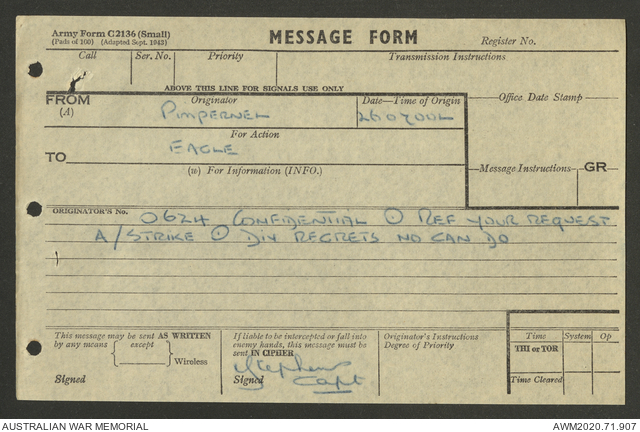 Army Form C2136 (Small)
(Pads of 100) (Adapted Sept. 1943)
MESSAGE FORM
Register No.
Call
Ser. No.
Priority
Transmission Instructions
ABOVE THIS LINE FOR SIGNALS USE ONLY
FROM
(A)
Originator
PIMPERNEL
Date—Time of Origin
260700L
Office Date Stamp
For Action
TO
EAGLE
(w) For Information (INFO.)
Message Instructions
GR
ORIGINATOR'S No.
0624 CONFIDENTIAL O REF YOUR REQUEST
A/STRIKE O DIV REGRETS NO CAN DO
This message may be sent AS WRITTEN
by any means except
Wireless
Signed
If liable to be intercepted or fall into
enemy hands, this message must be
sent IN CIPHER
Stephens
Signed Capt
Originator's Instructions
Degree of Priority
Time
System
Op
THI or TOR
Time Cleared
AUSTRALIAN WAR MEMORIAL
AWM2020.71.907